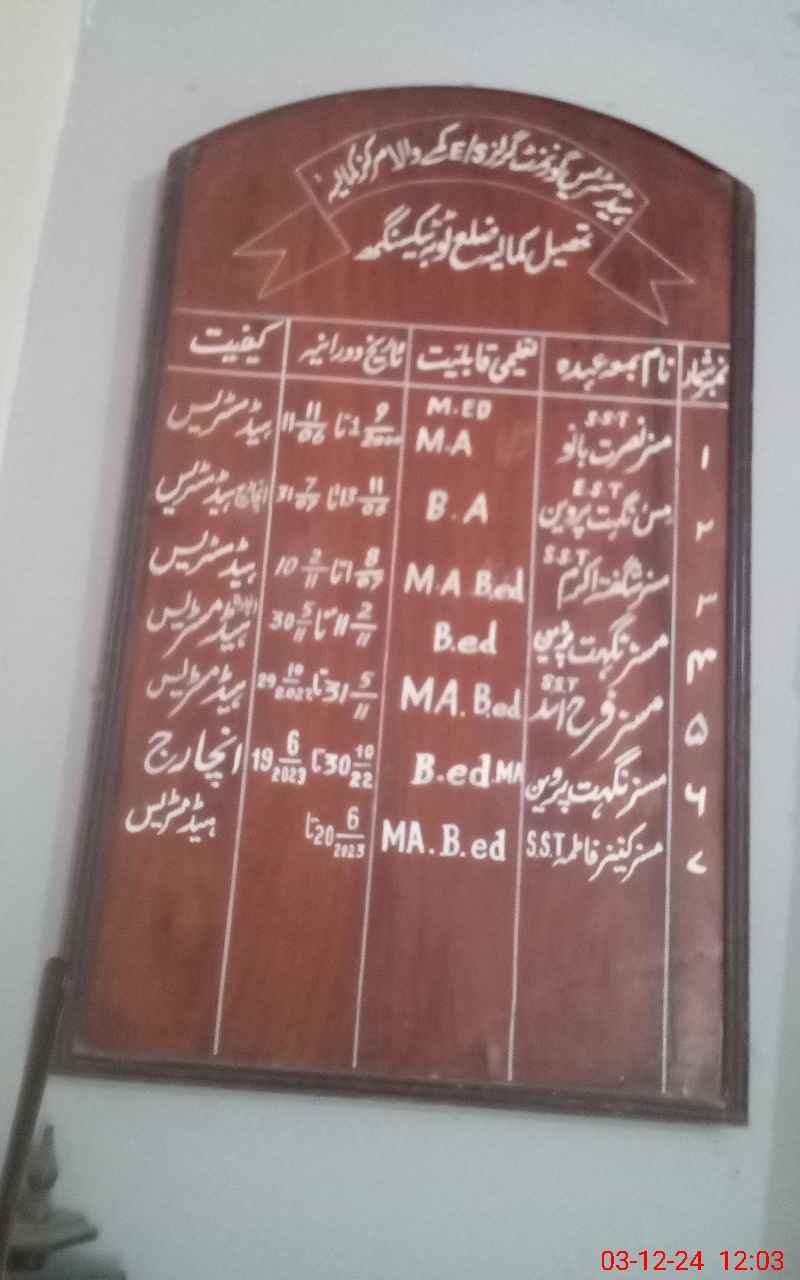 ہیڈمسٹریس گورنمنٹ گرلز E/S کے والا مرکز کمالیہ
تحصیل کمالیہ ضلع ٹوبہ ٹیک سنگھ
نمبر شمار نام بمعہ عہدہ تعلیمی قابلیت تاریخ دورانیہ کیفیت
۱ مسز نصرت بانو S.S.T M.ED M.A 1 9/2000 تا 11 11/06 ہیڈمسٹریس
۲ مسز نگہت پروین E.S.T B.A 13 11/06 تا 31 7/07 انچارج ہیڈمسٹریس
۳ مسز شگفتہ اکرم S.S.T M.A B.ed 1 8/07 تا 10 2/11 ہیڈمسٹریس
۴ مسز نگہت پروین B.ed 11 2/11 تا 30 5/11 ہیڈمسٹریس
۵ مسز فرح اسد S.S.T MA. B.ed 31 5/11 تا 29 10/2022 ہیڈمسٹریس
۶ مسز نگہت پروین B.ed.MA 30 10/22 تا 19 6/2023 انچارج
۷ مسز کنیز فاطمہ S.S.T MA. B.ed 20 6/2023 تا ہیڈمسٹریس
03-12-24 12:03